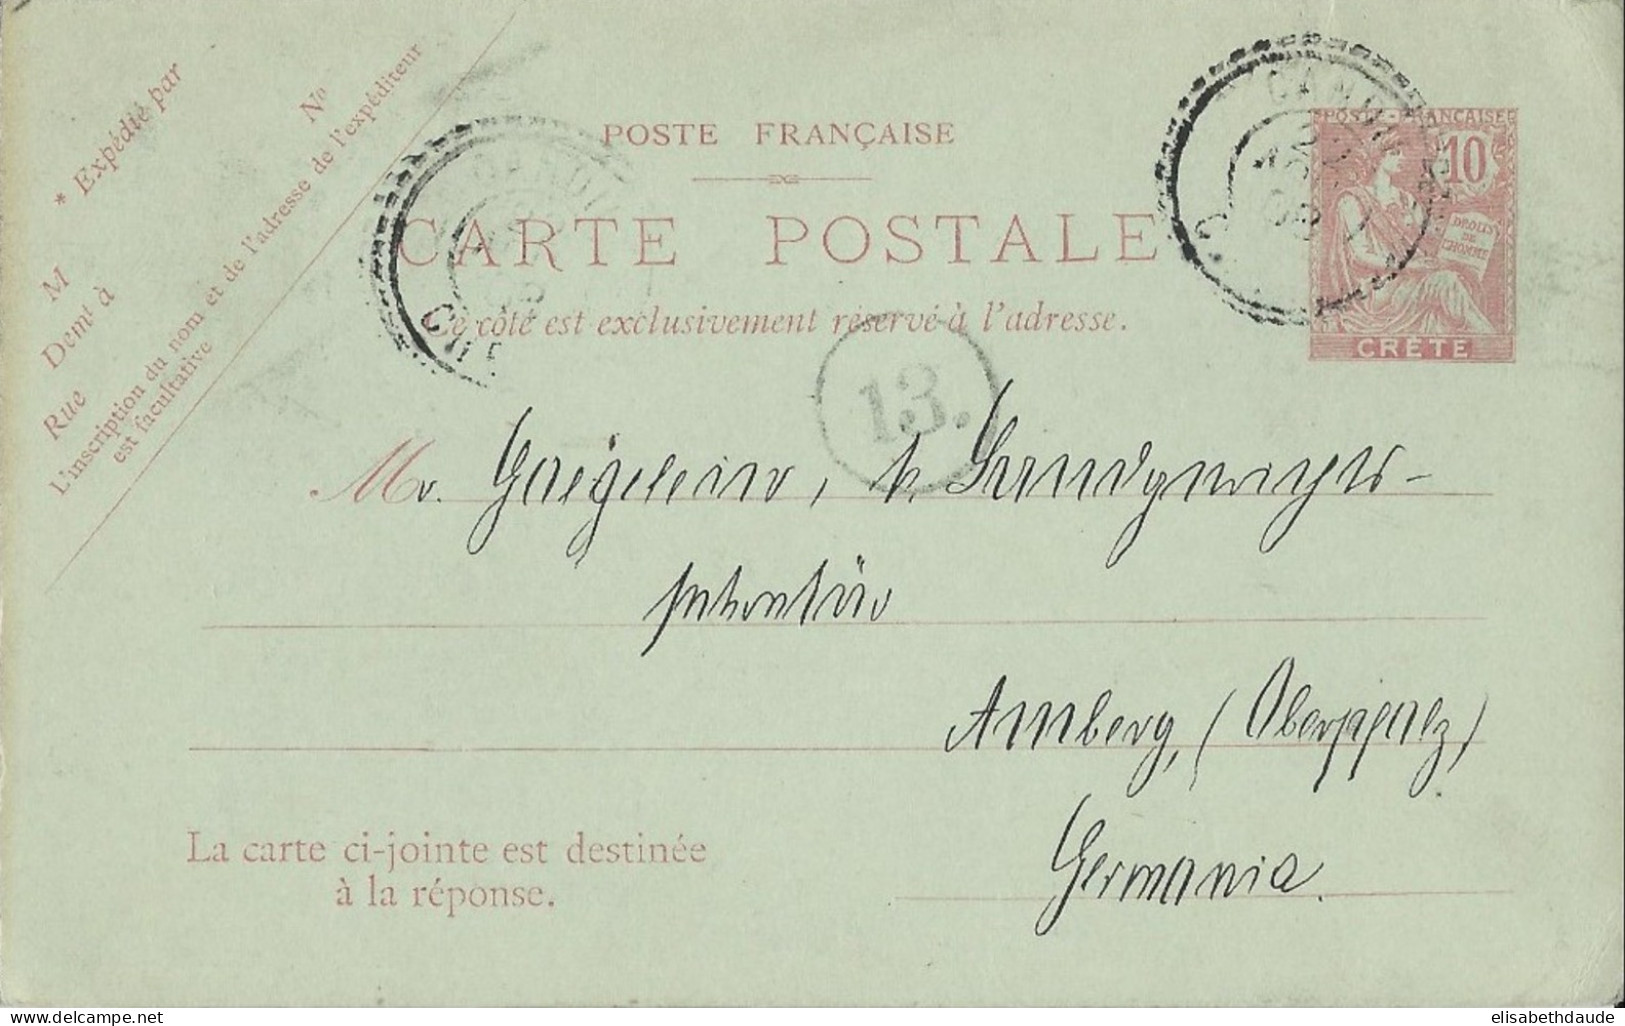 * Expédié par
N°
M
Demt à
Rue
L'inscription du nom et de l'adresse de l'expéditeur
est facultative
POSTE FRANÇAISE
CARTE POSTALE
Ce côté est exclusivement réservé à l'adresse.
POSTE-FRANÇAISE
10
DROITS
DE
L'HOMME
CRÈTE
13.
Mr.
Amberg, (Oberpfalz)
Germania.
La carte ci-jointe est destinée
à la réponse.
©elisabethdaude
elisabethdaude